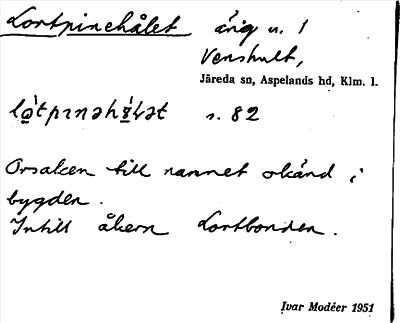 Lortpinehålet äng u. 1
Venshult,
Järeda sn, Aspelands hd, Klm. l.
s. 82
Orsaken till namnet okänd i
bygden.
Intill åkern Lortbonden.
Ivar Modéer 1951